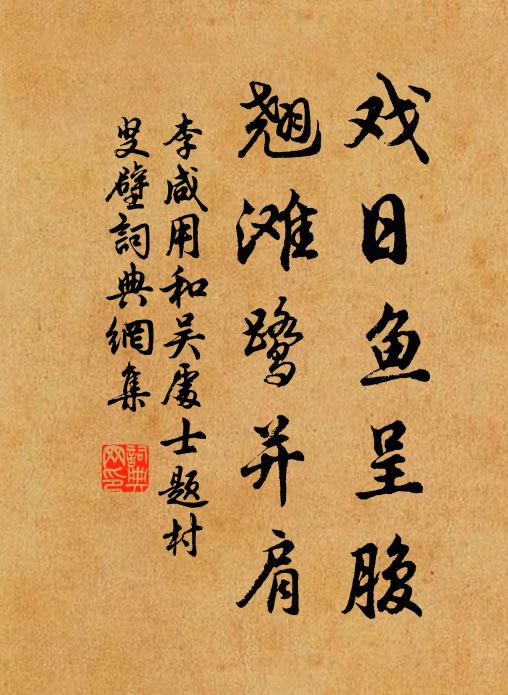 戏日鱼呈腹
翘滩鹭并肩
李咸用和吴處士题村
叟壁詞典網集
詞典
网印